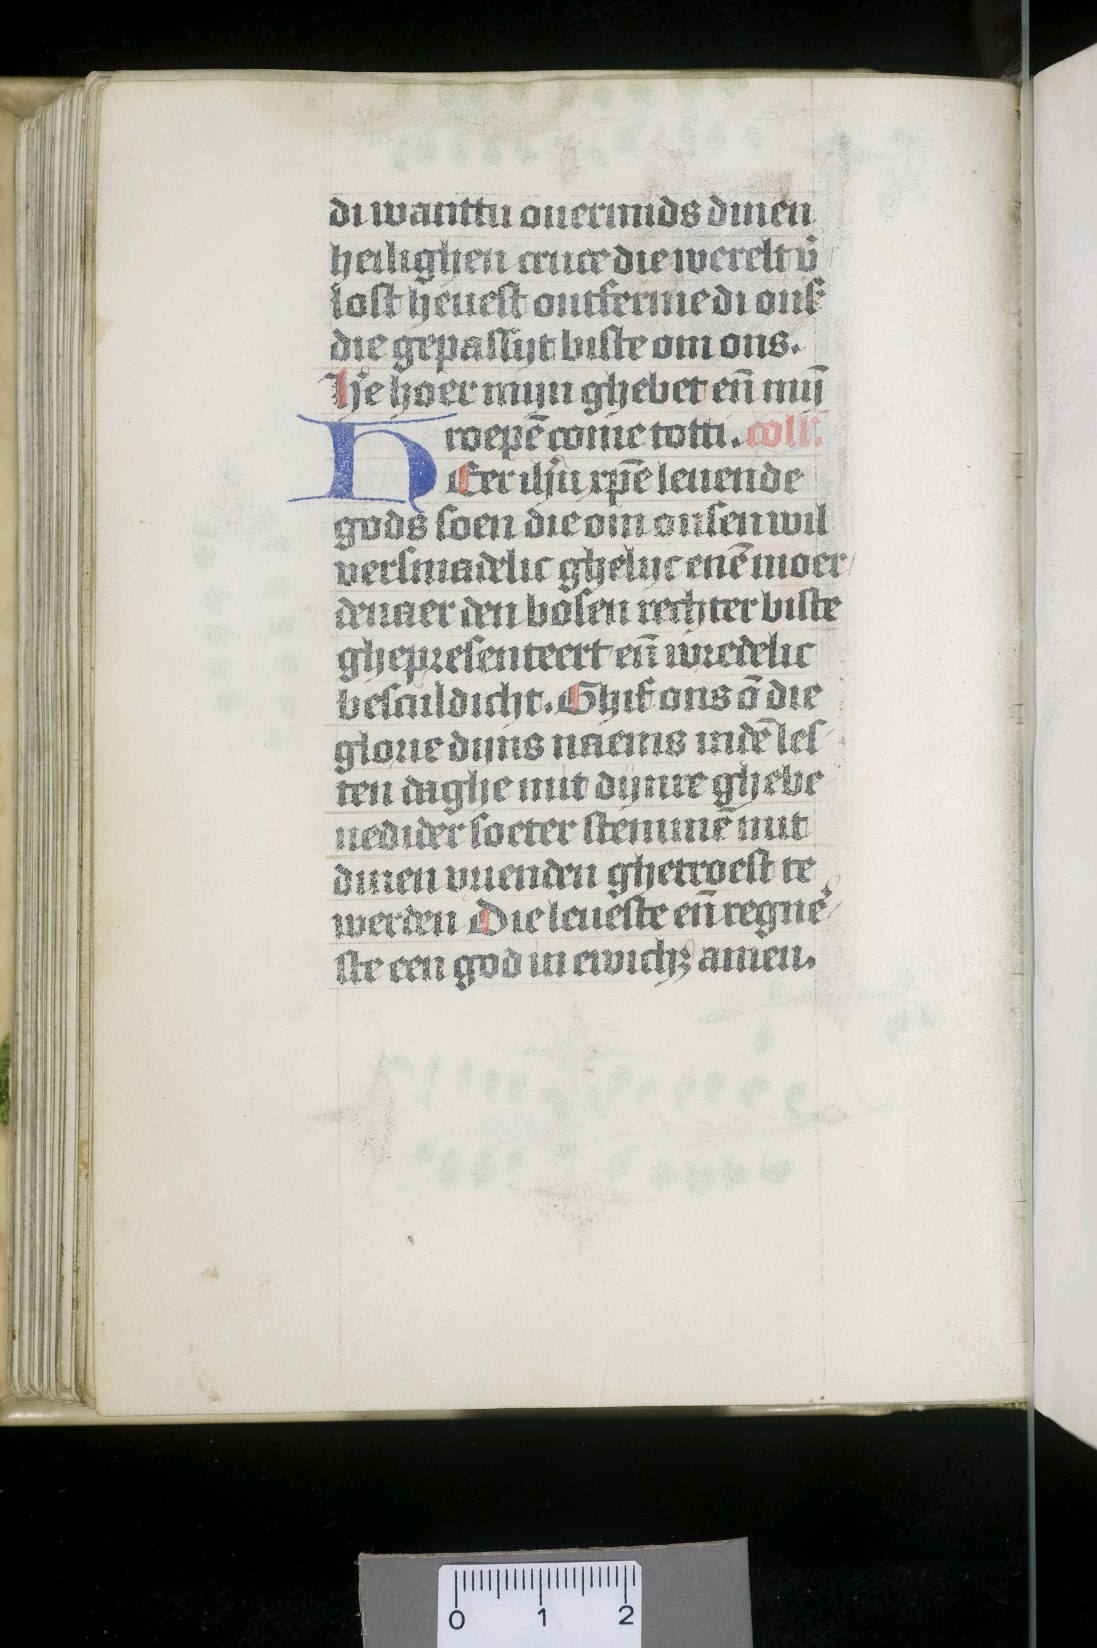 di wanttu ouermids dinen
heilighen cruce die werelt v̊
lost heuest ontferme di onſ
die gepassijt biste om ons.
He hoer mijn ghebet en̄ mij̄
roepē come totti. coll'
HEer ihū xp̄e leuende
gods soen die om onsen wil
versmadelic ghelijc enē moer
denaer den bosen rechter biste
ghepresenteert en̄ wredelic
besculdicht. Ghif ons ō die
glorie dijns naems indē les
ten daghe mit dijnre ghebe
nedider soeter stemmē mit
dinen vrienden ghetroest te
werden Die leueste en̄ regne
ste een god in ewichꝫ amen.
0 1 2